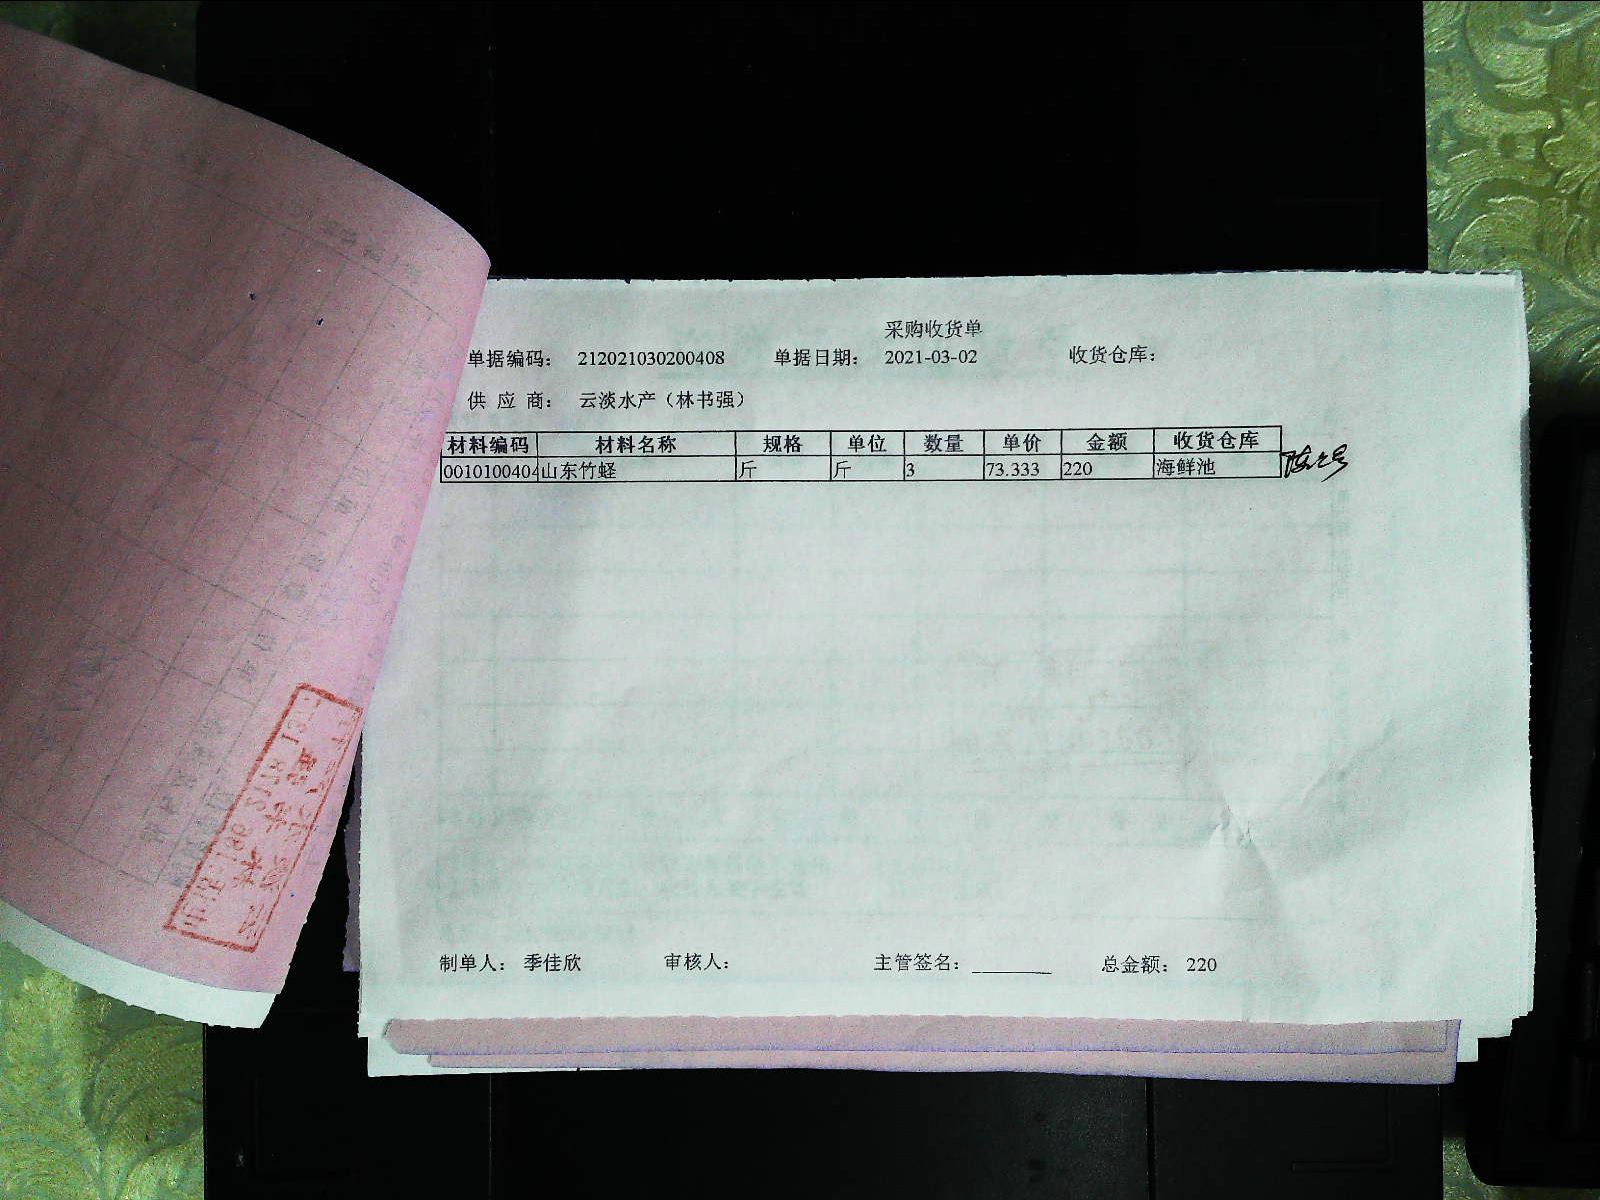 采购收货单
单据编码： 212021030200408 单据日期： 2021-03-02 收货仓库：
供 应 商： 云淡水产（林书强）
材料编码 材料名称 规格 单位 数量 单价 金额 收货仓库
0010100404 山东竹蛏 斤 斤 3 73.333 220 海鲜池
制单人： 季佳欣 审核人： 主管签名： ________ 总金额： 220